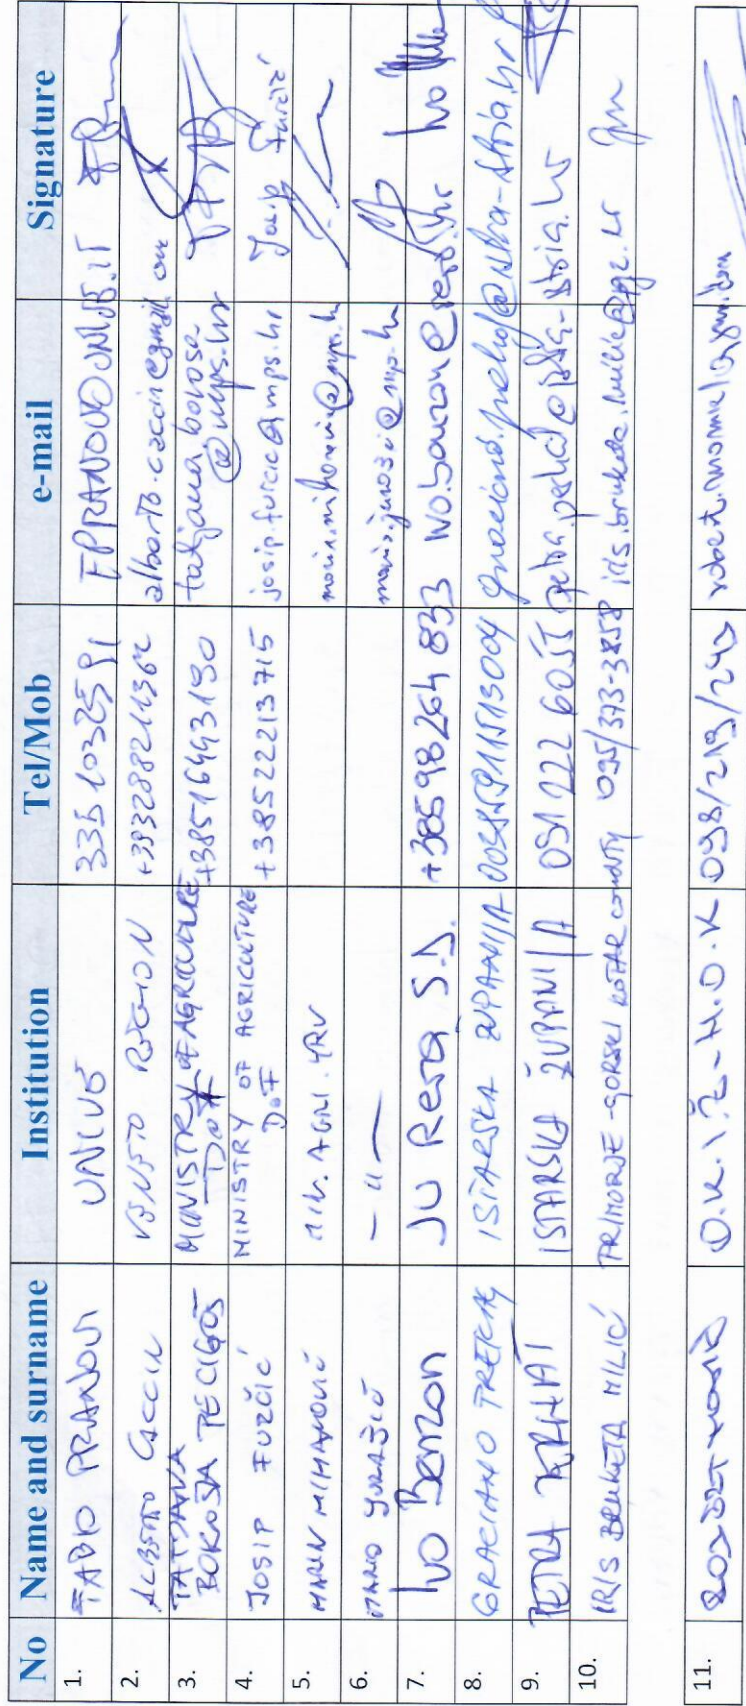 No Name and surname Institution Tel/Mob e-mail Signature
1. FABIO PRANOVI UNIVE 335 1032591 FPRANOVI@UNIVE.IT
2. ALBERTO CACCIN VENETO REGION +393288211362 alberto.caccin@gmail.com
3. TATJANA BOROŠA PECIGOŠ MINISTRY OF AGRICULTURE DoF +38516443190 tatjana.borosa@mps.hr
4. JOSIP FURČIĆ MINISTRY OF AGRICULTURE DoF +38522213715 josip.furcic@mps.hr Josip Furčić
5. MARIN MIHANOVIĆ MIN. AGRI. marin.mihanovic@mps.hr
6. MARIO JURAŠIĆ - " - mario.jurasic@mps.hr
7. Ivo Benzon JU Rera S.D. +38598264833 Ivo
8. GRACIANO ISTARSKA ŽUPANIJA
9. PETRA ISTARSKA ŽUPANIJA 091 222 6055
10. IRIS BRUKETA MILIĆ PRIMORJE-GORSKI KOTAR county 095/373-3858 iris.bruketa.milic@pgz.hr
11. O.K.I.Ž - H.O.K 098/219/242